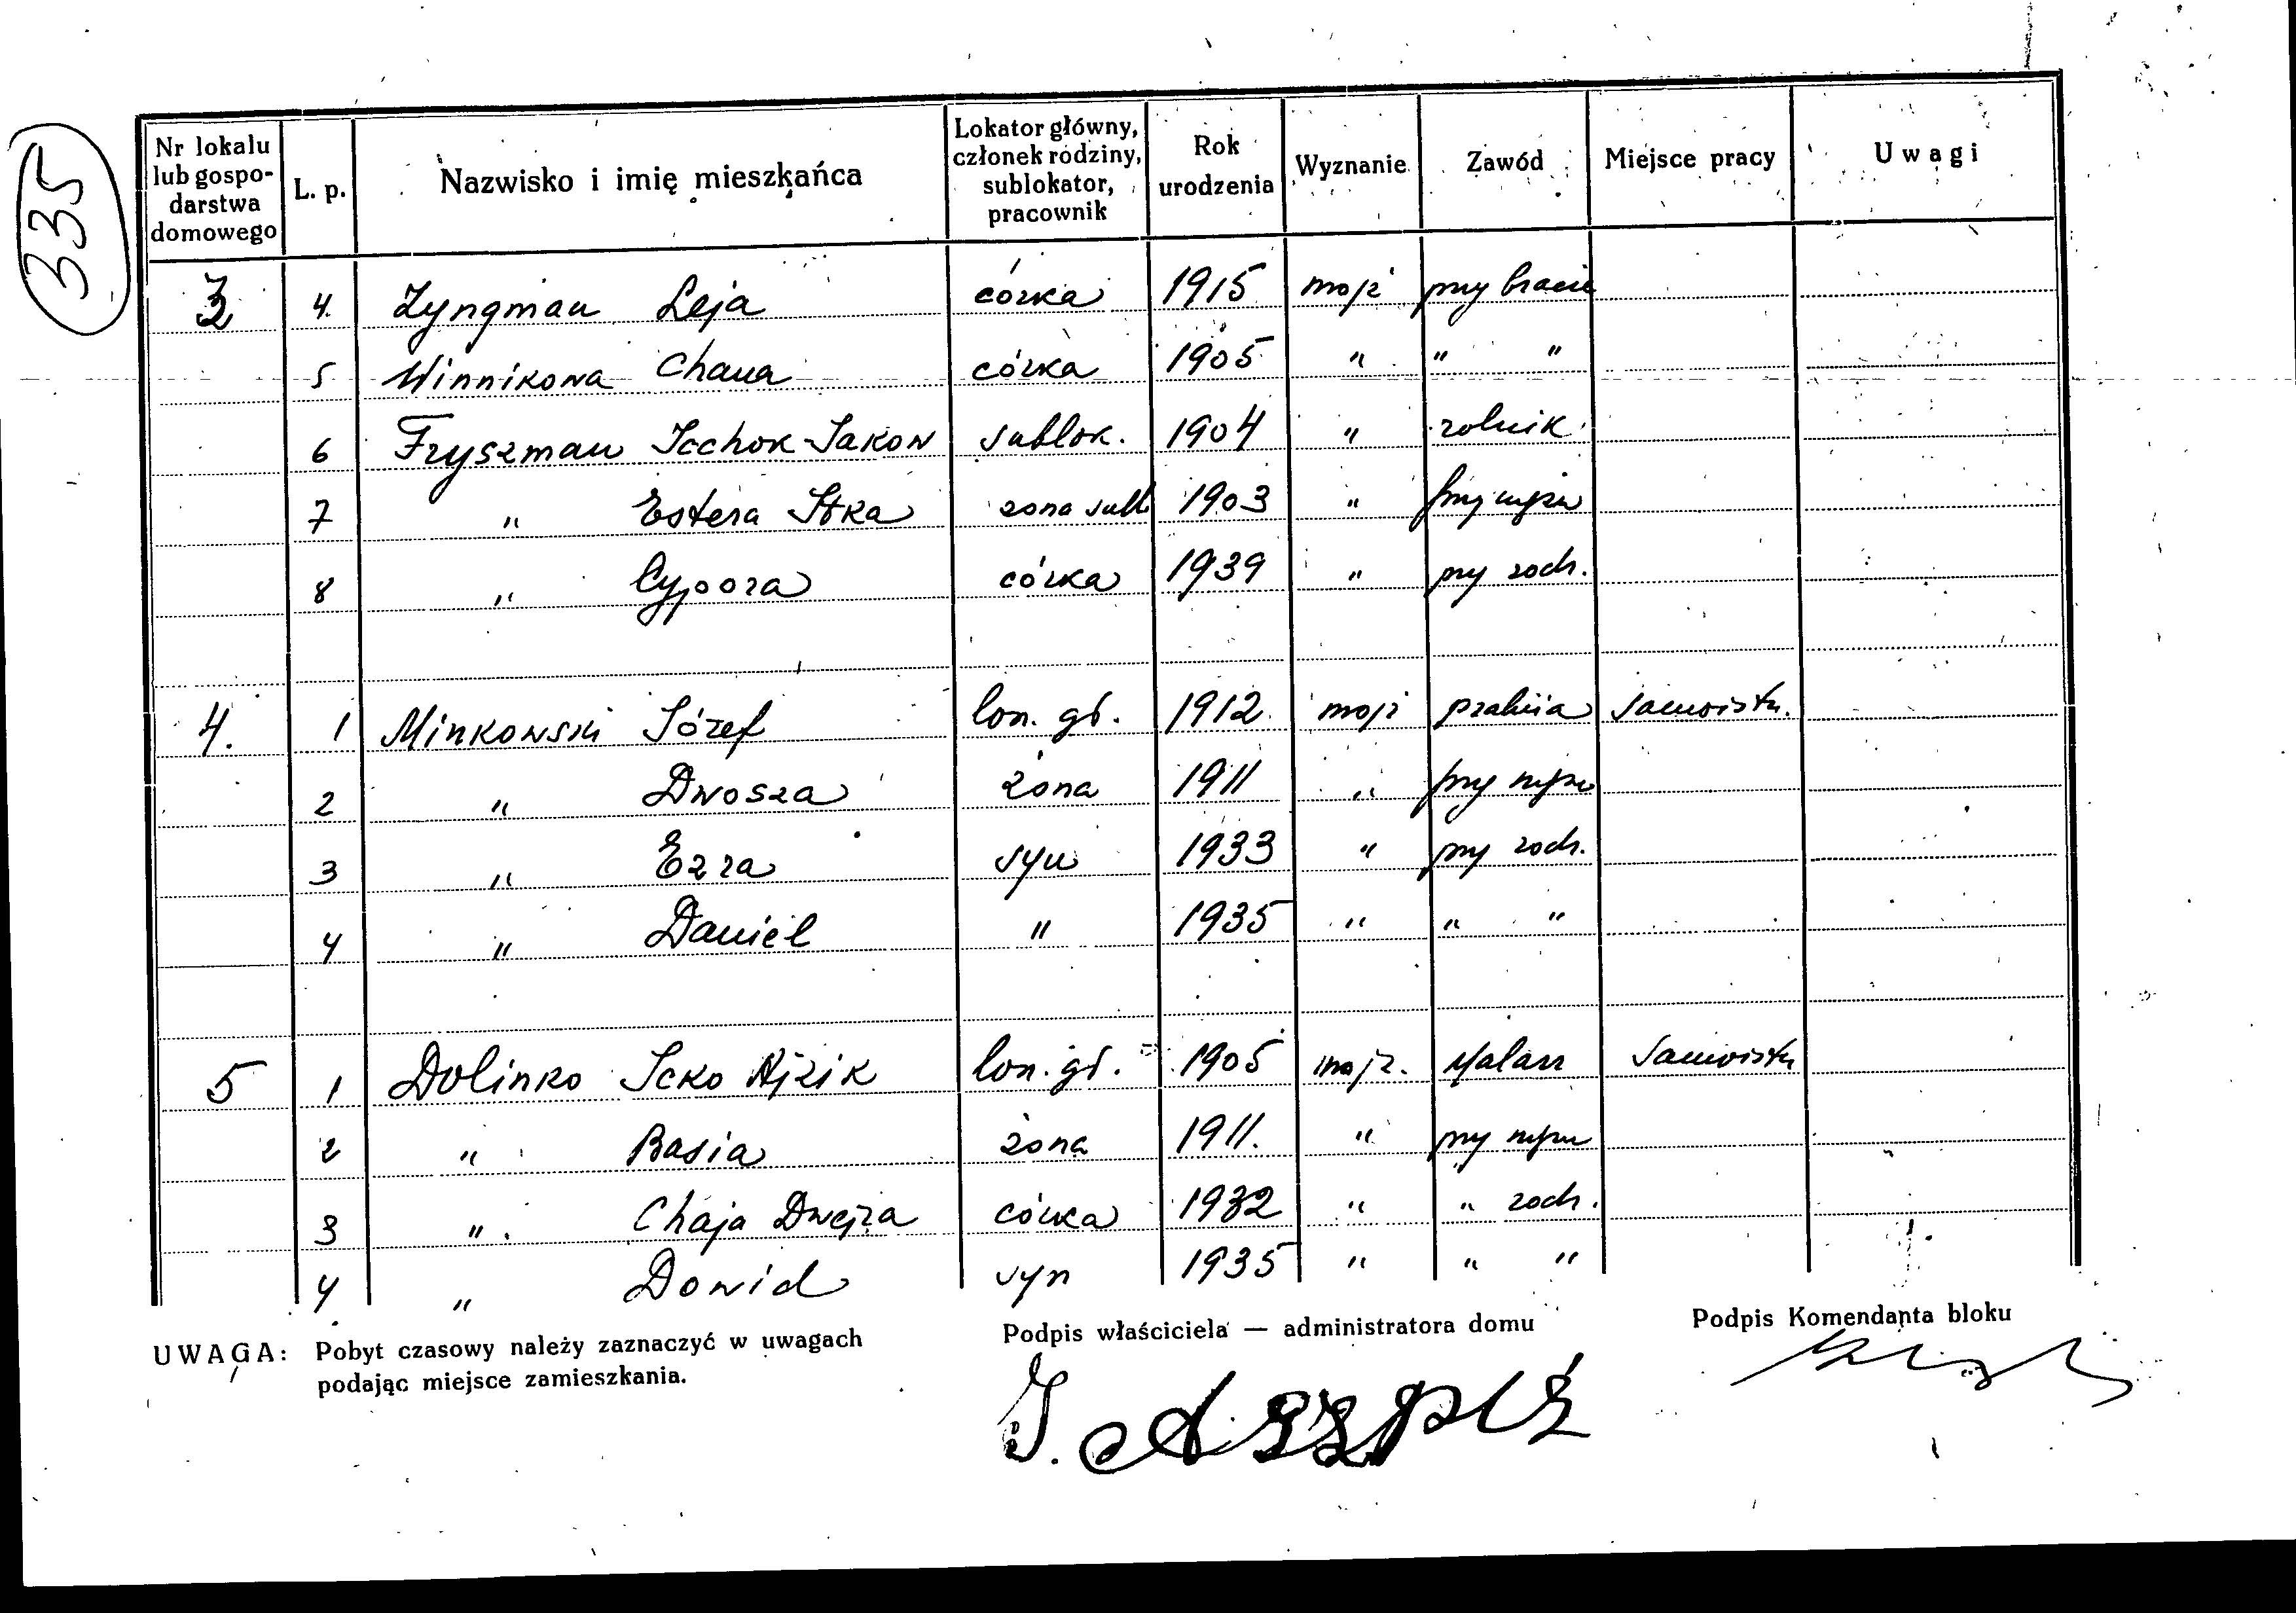 335
Nr lokalu lub gospo- darstwa domowego | L. p. | Nazwisko i imię mieszkańca | Lokator główny, członek rodziny, sublokator, pracownik | Rok urodzenia | Wyznanie | Zawód | Miejsce pracy | Uwagi
3 4. Zyngman Leja córka 1915 mojż przy bracie
5 Winnikowa Chana córka 1905 " " "
6 Fryszman Icchok-Jakow sublok. 1904 " rolnik
7 " Estera Itka żona subl. 1903 " przy mężu
8 " Cypora córka 1939 " przy rodz.
4. 1 Minkowski Józef lok. gł. 1912 mojż pralnia samoistn.
2 " Dwosza żona 1911 " przy mężu
3 " Ezra syn 1933 " przy rodz.
4 " Daniel " 1935 " " "
5 1 Dolinko Icko Ajzik lok. gł. 1905 mojż. Malarz Samoistn
2 " Basia żona 1911. " przy mężu
3 " Chaja Dwejra córka 1932 " " rodz.
4 " Dowid syn 1935 " " "
UWAGA: Pobyt czasowy należy zaznaczyć w uwagach
podając miejsce zamieszkania.
Podpis właściciela — administratora domu
Podpis Komendanta bloku
J. Aszpiz